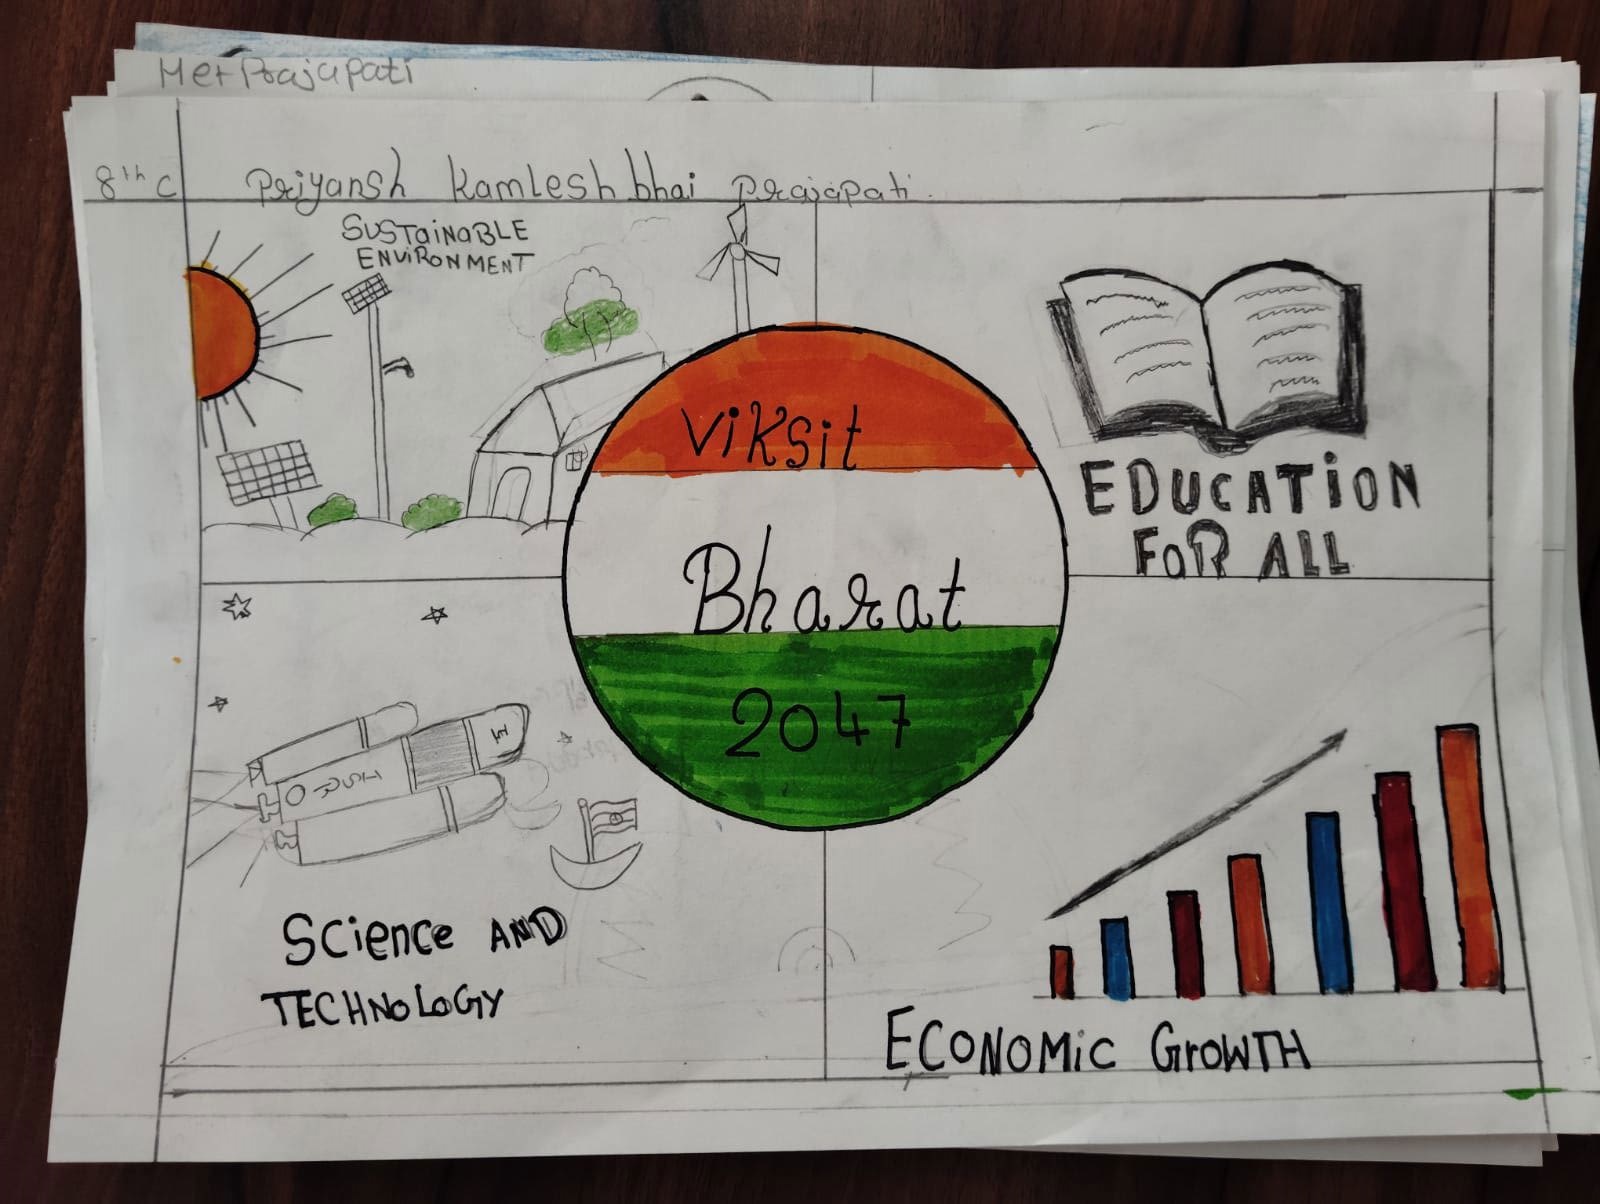 Met Prajapati
8th C
Priyansh Kamlesh bhai Prajapati.
SUSTAiNaBLE
ENViRONMENT
EDUCATiON
FoR ALL
Viksit
Bharat
2047
ISRO
SCience AND
TECHNoLoGY
ECONOMiC GrOWTH